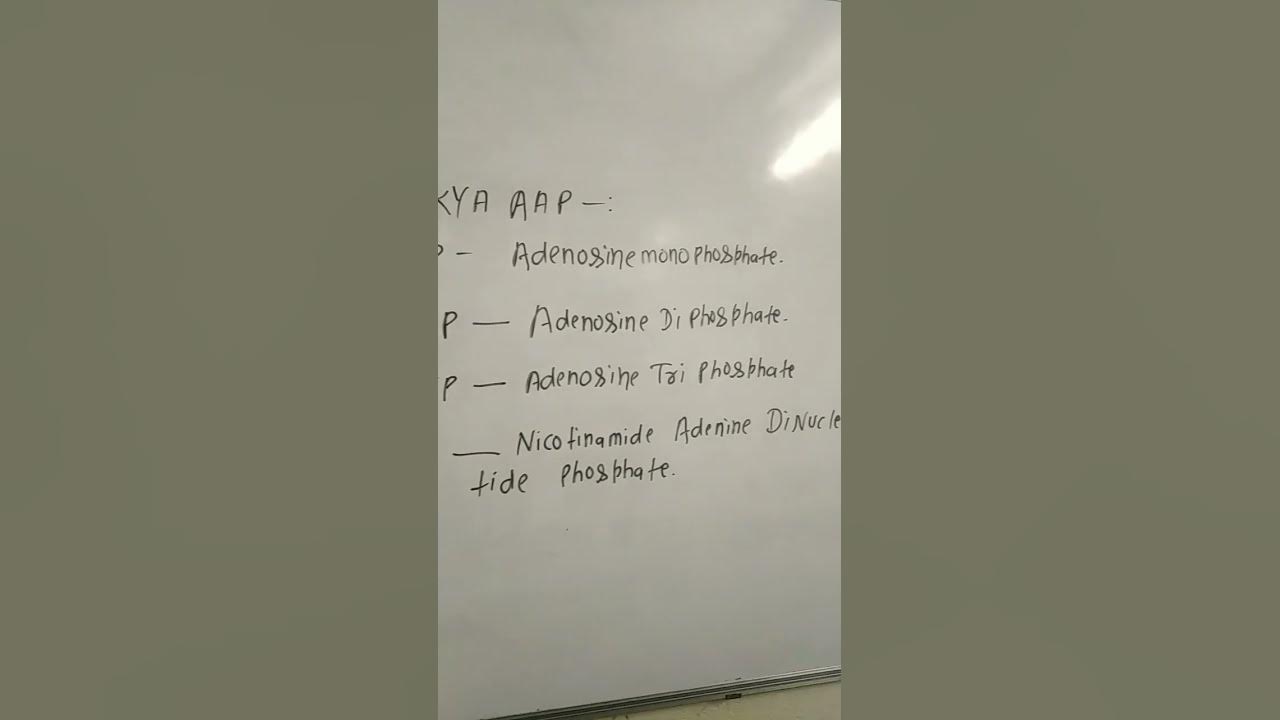 KYA AAP -:
P - Adenosine mono phosphate.
P — Adenosine Di phosphate.
P — Adenosine Tri phosphate
— Nicotinamide Adenine DiNucle
tide phosphate.